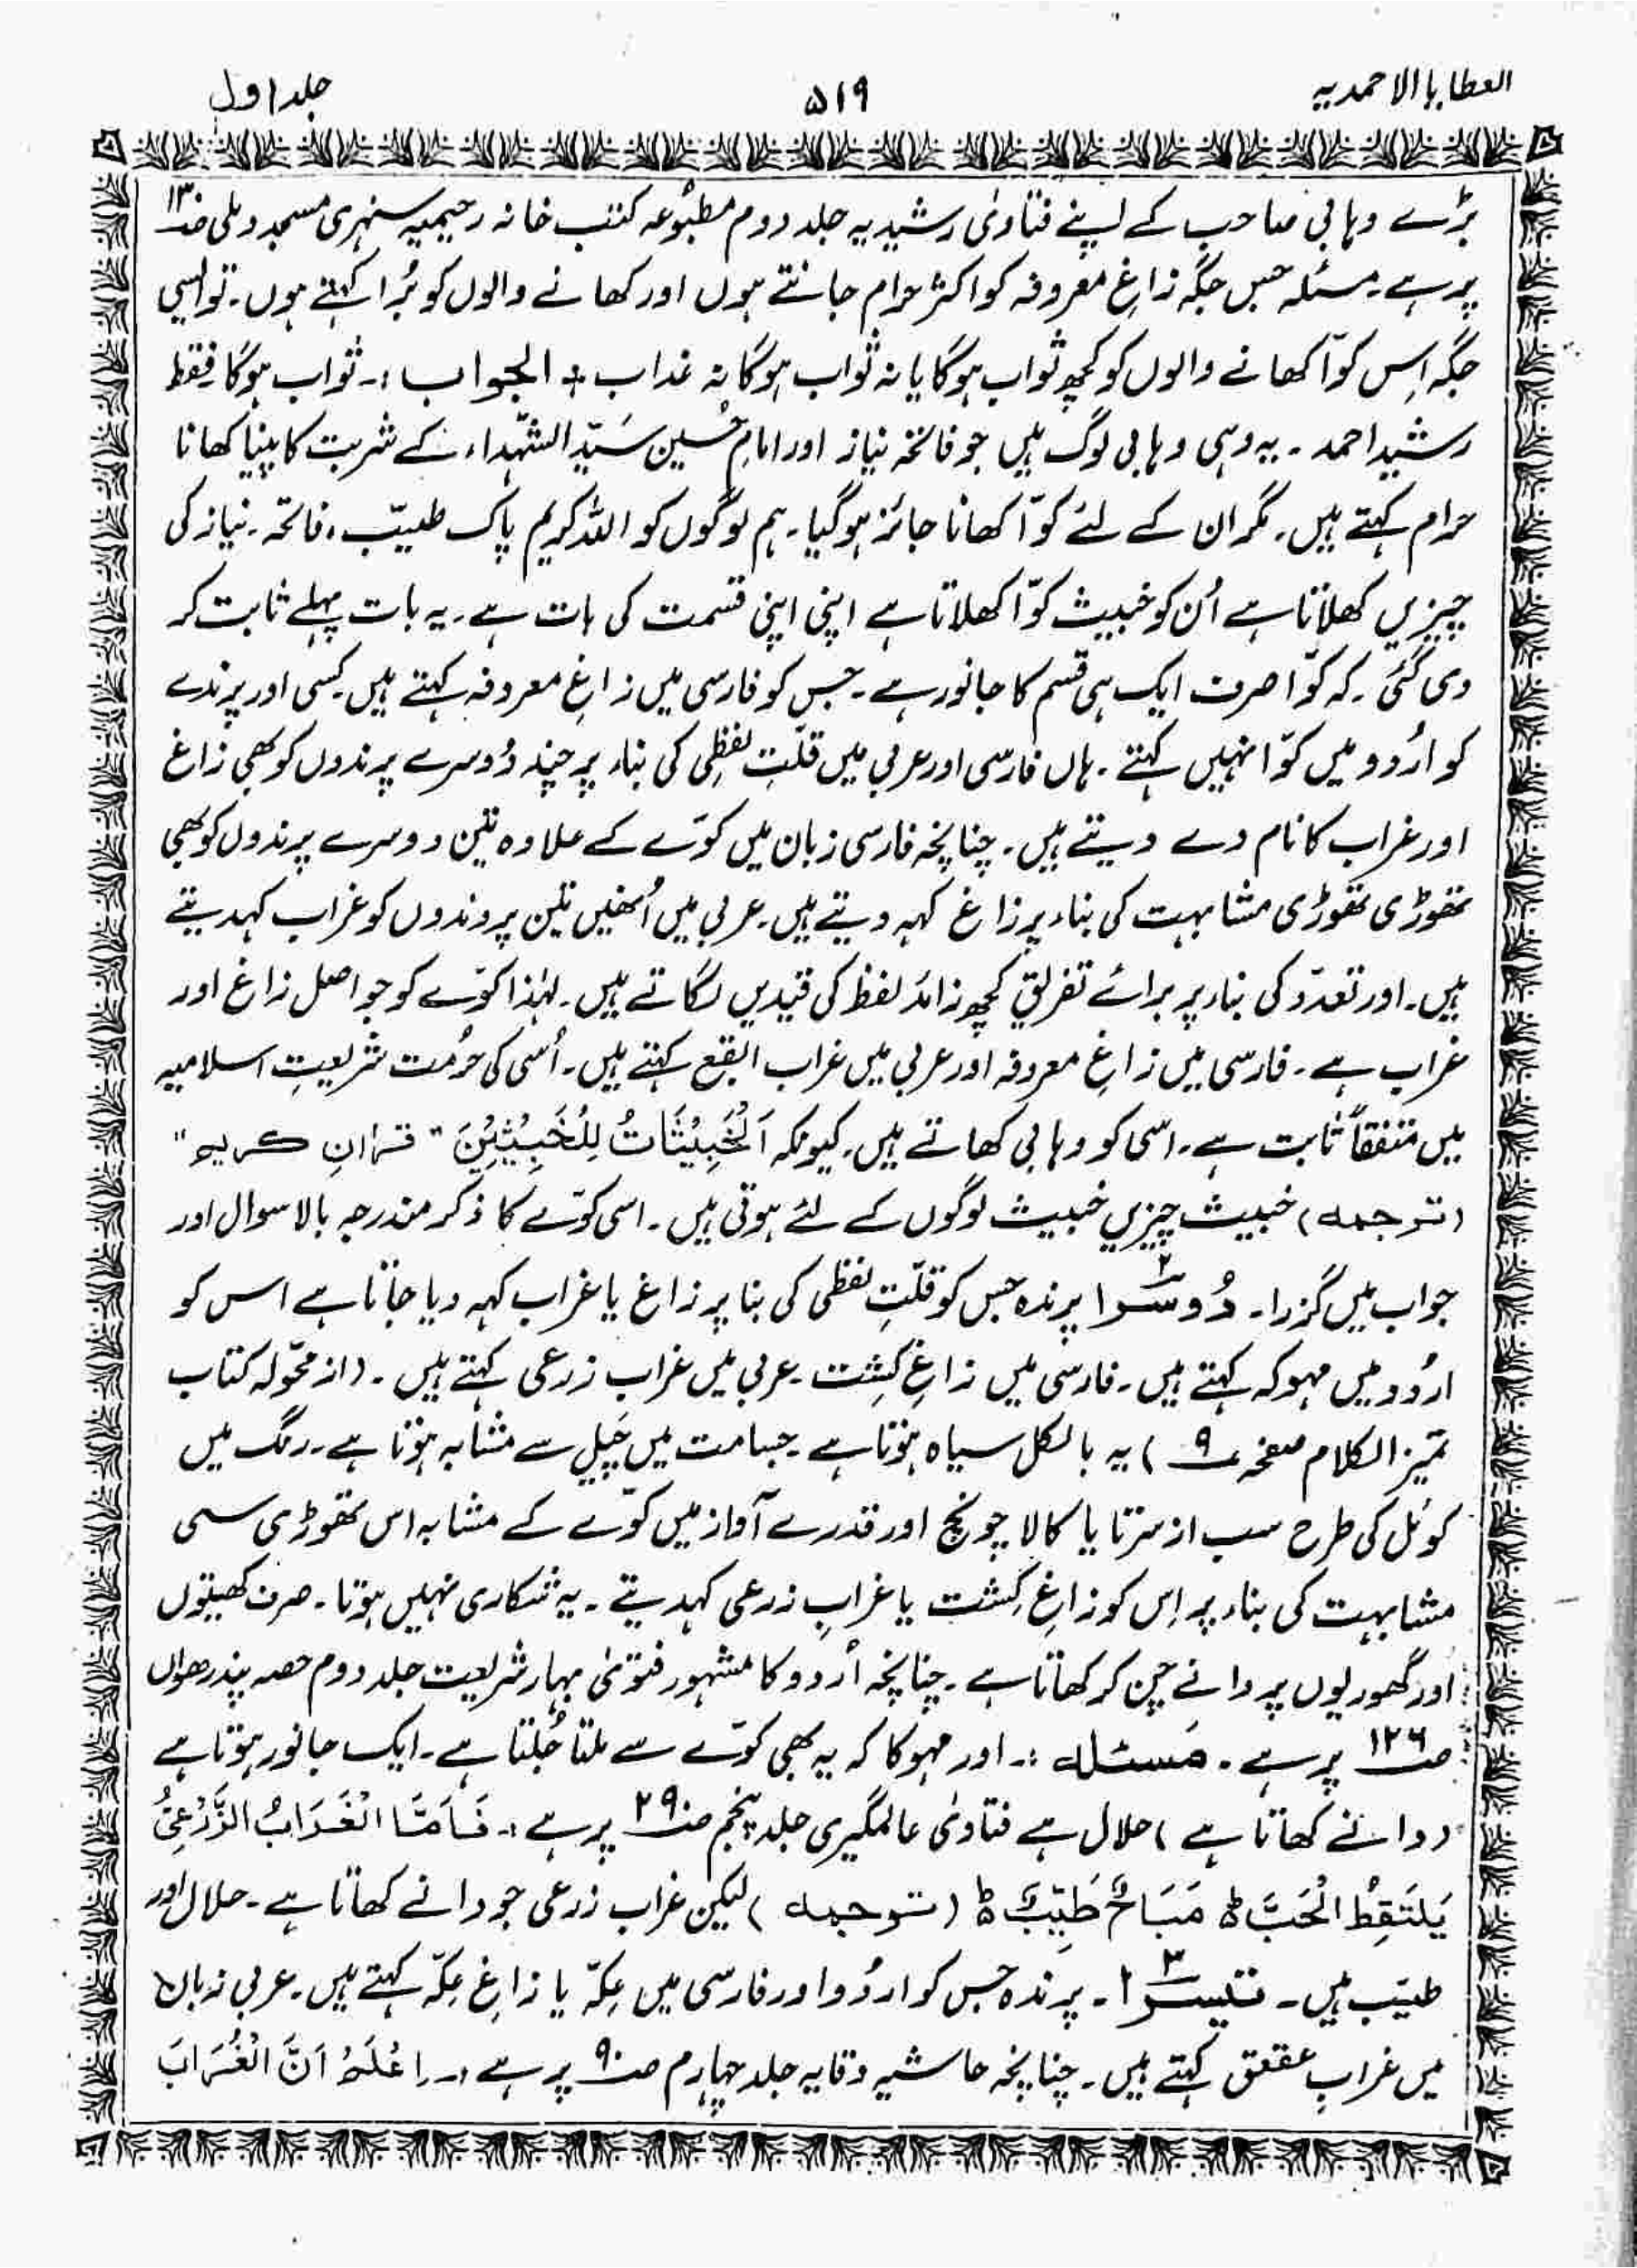 العطایا الاحمدیہ
۵۱۹
جلد اول
بڑے وہابی صاحب کے اپنے فتاویٰ رشیدیہ جلد دوم مطبُوعہ کتب خانہ رحیمیہ سنہری مسجد دہلی صـ۱۳۰
پر ہے۔ مسئلہ جس جگہ زاغِ معروفہ کو اکثر حرام جانتے ہوں اور کھانے والوں کو بُرا کہتے ہوں۔ تو ایسی
جگہ اِس کوّا کھانے والوں کو کچھ ثواب ہوگا یا نہ ثواب ہوگا نہ عذاب ÷ الجواب :۔ ثواب ہوگا۔ فقط
رشید احمد ۔ یہ وہی وہابی لوگ ہیں جو فاتحہ نیاز اور امامِ حُسین سَیّد الشہّداء کے شربت کا پینا کھانا
حرام کہتے ہیں۔ مگر ان کے لئے کوّا کھانا جائز ہوگیا۔ ہم لوگوں کو اللہ کریم پاک طیّب، فاتحہ۔ نیاز کی
چیزیں کھلاتا ہے اُن کو خبیث کوّا کھلاتا ہے اپنی اپنی قسمت کی بات ہے۔ یہ بات پہلے ثابت کر
دی گئی۔ کہ کوّا صرف ایک ہی قسم کا جانور ہے۔ جس کو فارسی میں زاغِ معروفہ کہتے ہیں۔ کسی اور پرندے
کو اُردو میں کوّا نہیں کہتے ۔ ہاں فارسی اور عربی میں قلّتِ لفظی کی بناء پر چند دُوسرے پرندوں کو بھی زاغ
اور غراب کا نام دے دیتے ہیں۔ چنانچہ فارسی زبان میں کوّے کے علاوہ تین دوسرے پرندوں کو بھی
تھوڑی تھوڑی مشابہت کی بناء پر زاغ کہہ دیتے ہیں۔ عربی میں اُنھیں تین پروندوں کو غراب کہدیتے
ہیں۔ اور تعدّد کی بناء پر برائے تفریق کچھ زائد لفظ کی قیدیں لگاتے ہیں۔ لہٰذا کوّے کو جو اصل زاغ اور
غراب ہے۔ فارسی میں زاغِ معروفہ اور عربی میں غراب ابقع کہتے ہیں۔ اُسی کی حُرمت شریعتِ اسلامیہ
میں متفقاً ثابت ہے۔ اسی کو وہابی کھاتے ہیں۔ کیونکہ اَلْخَبِیْثَاتُ لِلْخَبِیْثِیْنَ " قرانِ کریم "
(ترجمہ) خبیث چیزیں خبیث لوگوں کے لئے ہوتی ہیں۔ اسی کوّے کا ذکر مندرجہ بالا سوال اور
جواب میں گزرا۔ دُوسرا ۲ پرندہ جس کو قلّتِ لفظی کی بنا پر زاغ یا غراب کہہ دیا جاتا ہے اس کو
اردُو میں مہوکہ کہتے ہیں۔ فارسی میں زاغِ کِشت ۔ عربی میں غراب زرعی کہتے ہیں ۔ (از محوّلہ کتاب
تمیز الکلام صفحہ ۹) یہ بالکل سیاہ ہوتا ہے ۔ جسامت میں چیل سے مشابہ ہوتا ہے۔ رنگ میں
کوئل کی طرح سب از سر تا پا کالا چونچ اور قدرے آواز میں کوّے کے مشابہ اس تھوڑی سی
مشابہت کی بناء پر اِس کو زاغِ کِشت یا غرابِ زرعی کہدیتے ۔ یہ شکاری نہیں ہوتا ۔ صرف کھیتوں
اور گھوریوں پر دانے چن کر کھاتا ہے ۔ چنانچہ اُردو کا مشہور فتویٰ بہار شریعت جلد دوم حصہ پندرھواں
صـ۱۲۶ پر ہے ۔ مَسئلہ :۔ اور مہوکا کہ یہ بھی کوّے سے ملتا جُلتا ہے۔ ایک جانور ہوتا ہے
(دانے کھاتا ہے) حلال ہے فتاویٰ عالمگیری جلد پنجم صـ۲۹۰ پر ہے :۔ فَاَمَّا الْغَرَابُ الزَّرْعِیُّ
یَلتَقِطُ الْحَبَّ مَبَاحٌ طَیِّبٌ (ترجمہ) لیکن غراب زرعی جو دانے کھاتا ہے ۔ حلال اور
طیّب ہیں۔ تیسرا ۳ ۔ پرندہ جس کو اردُو اور فارسی میں عِکّہ یا زاغِ عِکّہ کہتے ہیں۔ عربی زبان
میں غرابِ عقعق کہتے ہیں۔ چنانچہ حاشیہ وقایہ جلد چہارم صـ۹۰ پر ہے :۔ اِعْلَمْ اَنَّ الْغُرَابَ